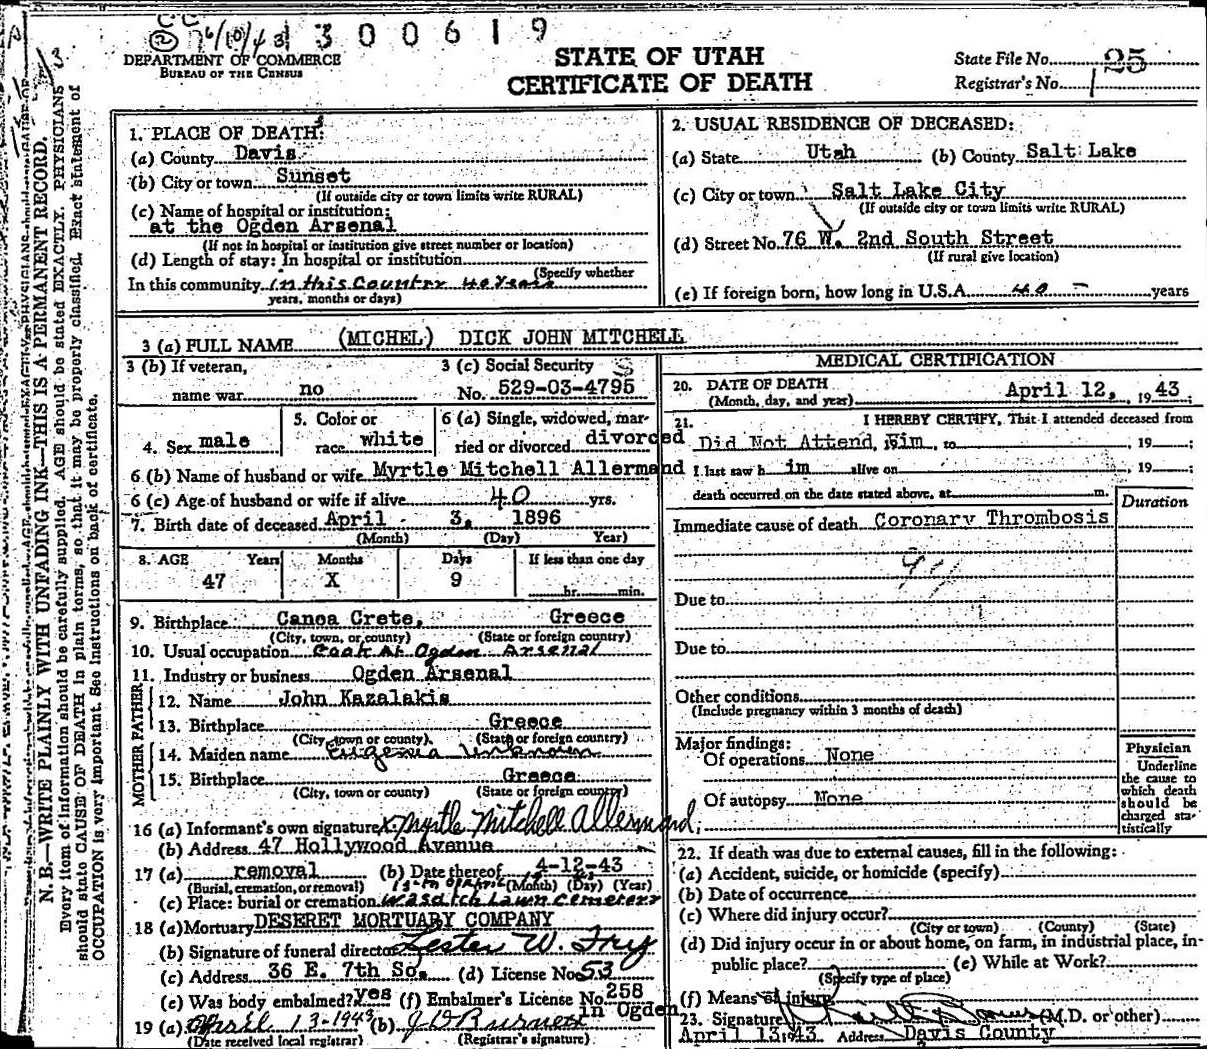 CC
② 7/10/43 1300619
DEPARTMENT OF COMMERCE
BUREAU OF THE CENSUS
STATE OF UTAH
CERTIFICATE OF DEATH
State File No. 25
Registrar's No. 1
N. B.—WRITE PLAINLY WITH UNFADING INK—THIS IS A PERMANENT RECORD.
Every item of information should be carefully supplied. AGE should be stated EXACTLY. PHYSICIANS
should state CAUSE OF DEATH in plain terms, so that it may be properly classified. Exact statement of
OCCUPATION is very important. See instructions on back of certificate.
1. PLACE OF DEATH:
(a) County Davis
(b) City or town Sunset
(If outside city or town limits write RURAL)
(c) Name of hospital or institution:
at the Ogden Arsenal
(If not in hospital or institution give street number or location)
(d) Length of stay: In hospital or institution
(Specify whether
In this community in this Country 40 Years
years, months or days)
2. USUAL RESIDENCE OF DECEASED:
(a) State Utah (b) County Salt Lake
(c) City or town Salt Lake City
(If outside city or town limits write RURAL)
(d) Street No. 76 W. 2nd South Street
(If rural give location)
(e) If foreign born, how long in U.S.A. 40 years
3 (a) FULL NAME (MICHEL) DICK JOHN MITCHELL
3 (b) If veteran, name war no
3 (c) Social Security No. 529-03-4795
4. Sex male
5. Color or race white
6 (a) Single, widowed, married or divorced divorced
6 (b) Name of husband or wife Myrtle Mitchell Allermand
6 (c) Age of husband or wife if alive 40 yrs.
7. Birth date of deceased April 3, 1896
(Month) (Day) Year)
8. AGE Years Months Days If less than one day
47 X 9 hr. min.
9. Birthplace Canoa Crete, Greece
(City, town, or county) (State or foreign country)
10. Usual occupation Cook At Ogden Arsenal
11. Industry or business Ogden Arsenal
FATHER
12. Name John Kazalakis
13. Birthplace Greece
(City, town or county) (State or foreign country)
MOTHER
14. Maiden name Eugenia Unknown
15. Birthplace Greece
(City, town or county) (State or foreign country)
16 (a) Informant's own signature x Myrtle Mitchell Allermand
(b) Address 47 Hollywood Avenue
17 (a) removal (b) Date thereof 4-12-43
(Burial, cremation, or removal) (Month) (Day) (Year)
(c) Place: burial or cremation Wasatch Lawn Cemetery
18 (a) Mortuary DESERET MORTUARY COMPANY
(b) Signature of funeral director Lester W. Fry
(c) Address 36 E. 7th So. (d) License No. 53
(e) Was body embalmed? yes (f) Embalmer's License No. 258
in Ogden
19 (a) April 13-1943 (b) J D Burnett
(Date received local registrar) (Registrar's signature)
MEDICAL CERTIFICATION
20. DATE OF DEATH
(Month, day, and year) April 12, 1943;
21. I HEREBY CERTIFY, That I attended deceased from
Did Not Attend Him, to , 19 ;
I last saw h im alive on , 19 ;
death occurred on the date stated above, at m.
Duration
Immediate cause of death Coronary Thrombosis
Due to
Due to
Other conditions
(Include pregnancy within 3 months of death)
Major findings:
Of operations None
Of autopsy None
Physician
Underline
the cause to
which death
should be
charged sta-
tistically
22. If death was due to external causes, fill in the following:
(a) Accident, suicide, or homicide (specify)
(b) Date of occurrence
(c) Where did injury occur?
(City or town) (County) (State)
(d) Did injury occur in or about home, on farm, in industrial place, in-
public place? (e) While at Work?
(Specify type of place)
(f) Means of injury
23. Signature (M.D. or other)
April 13, 43 Address Davis County